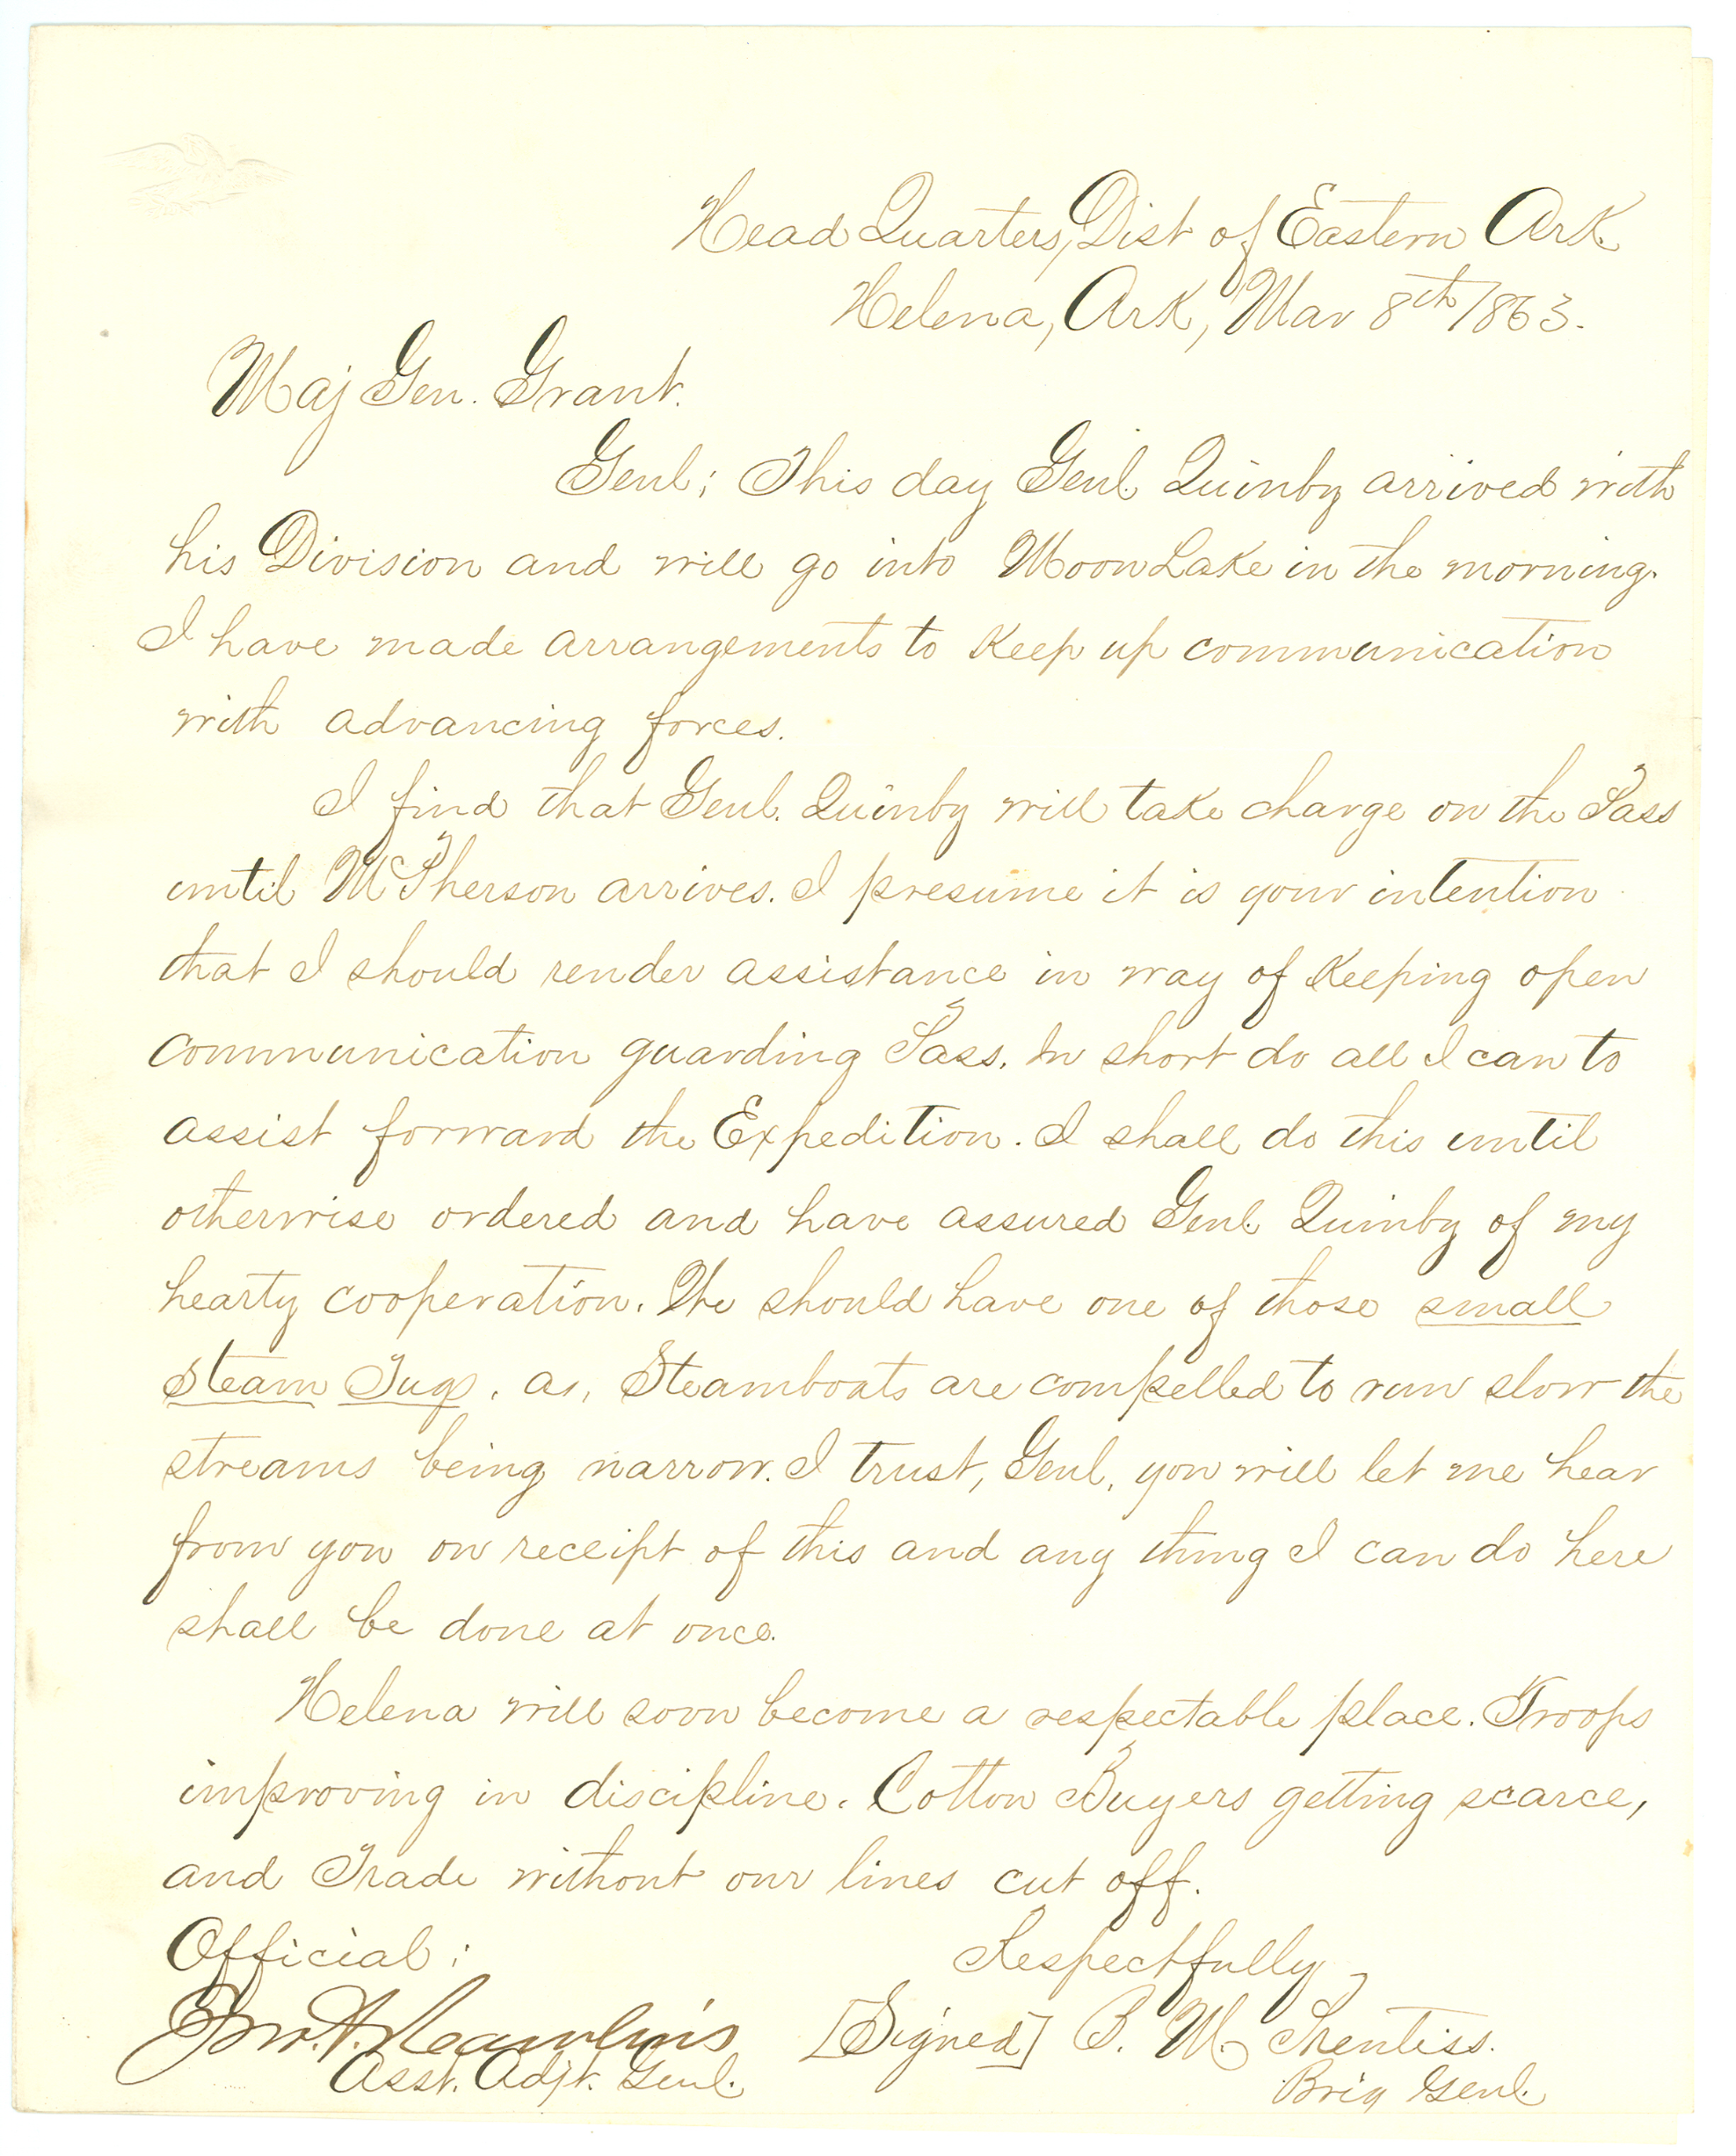 Head Quarters, Dist of Eastern Ark.
Helena, Ark, Mar 8th 1863.
Maj Gen. Grant.
Genl; This day Genl. Quinby arrived with
his Division and will go into Moon Lake in the morning.
I have made arrangements to keep up communication
with advancing forces.
I find that Genl. Quinby will take charge on the Pass
until McPherson arrives. I presume it is your intention
that I should render assistance in way of keeping open
communication guarding Pass. In short do all I can to
assist forward the Expedition. I shall do this until
otherwise ordered and have assured Genl. Quinby of my
hearty cooperation. We should have one of those small
steam Tugs, as, Steamboats are compelled to run slow the
streams being narrow. I trust, Genl, you will let me hear
from you on receipt of this and any thing I can do here
shall be done at once.
Helena will soon become a respectable place. Troops
improving in discipline. Cotton Buyers getting scarce,
and Trade without our lines cut off.
Official:
Respectfully
Jno. A. Rawlins
[Signed] B. M. Prentiss.
Asst. Adjt. Genl.
Brig Genl.